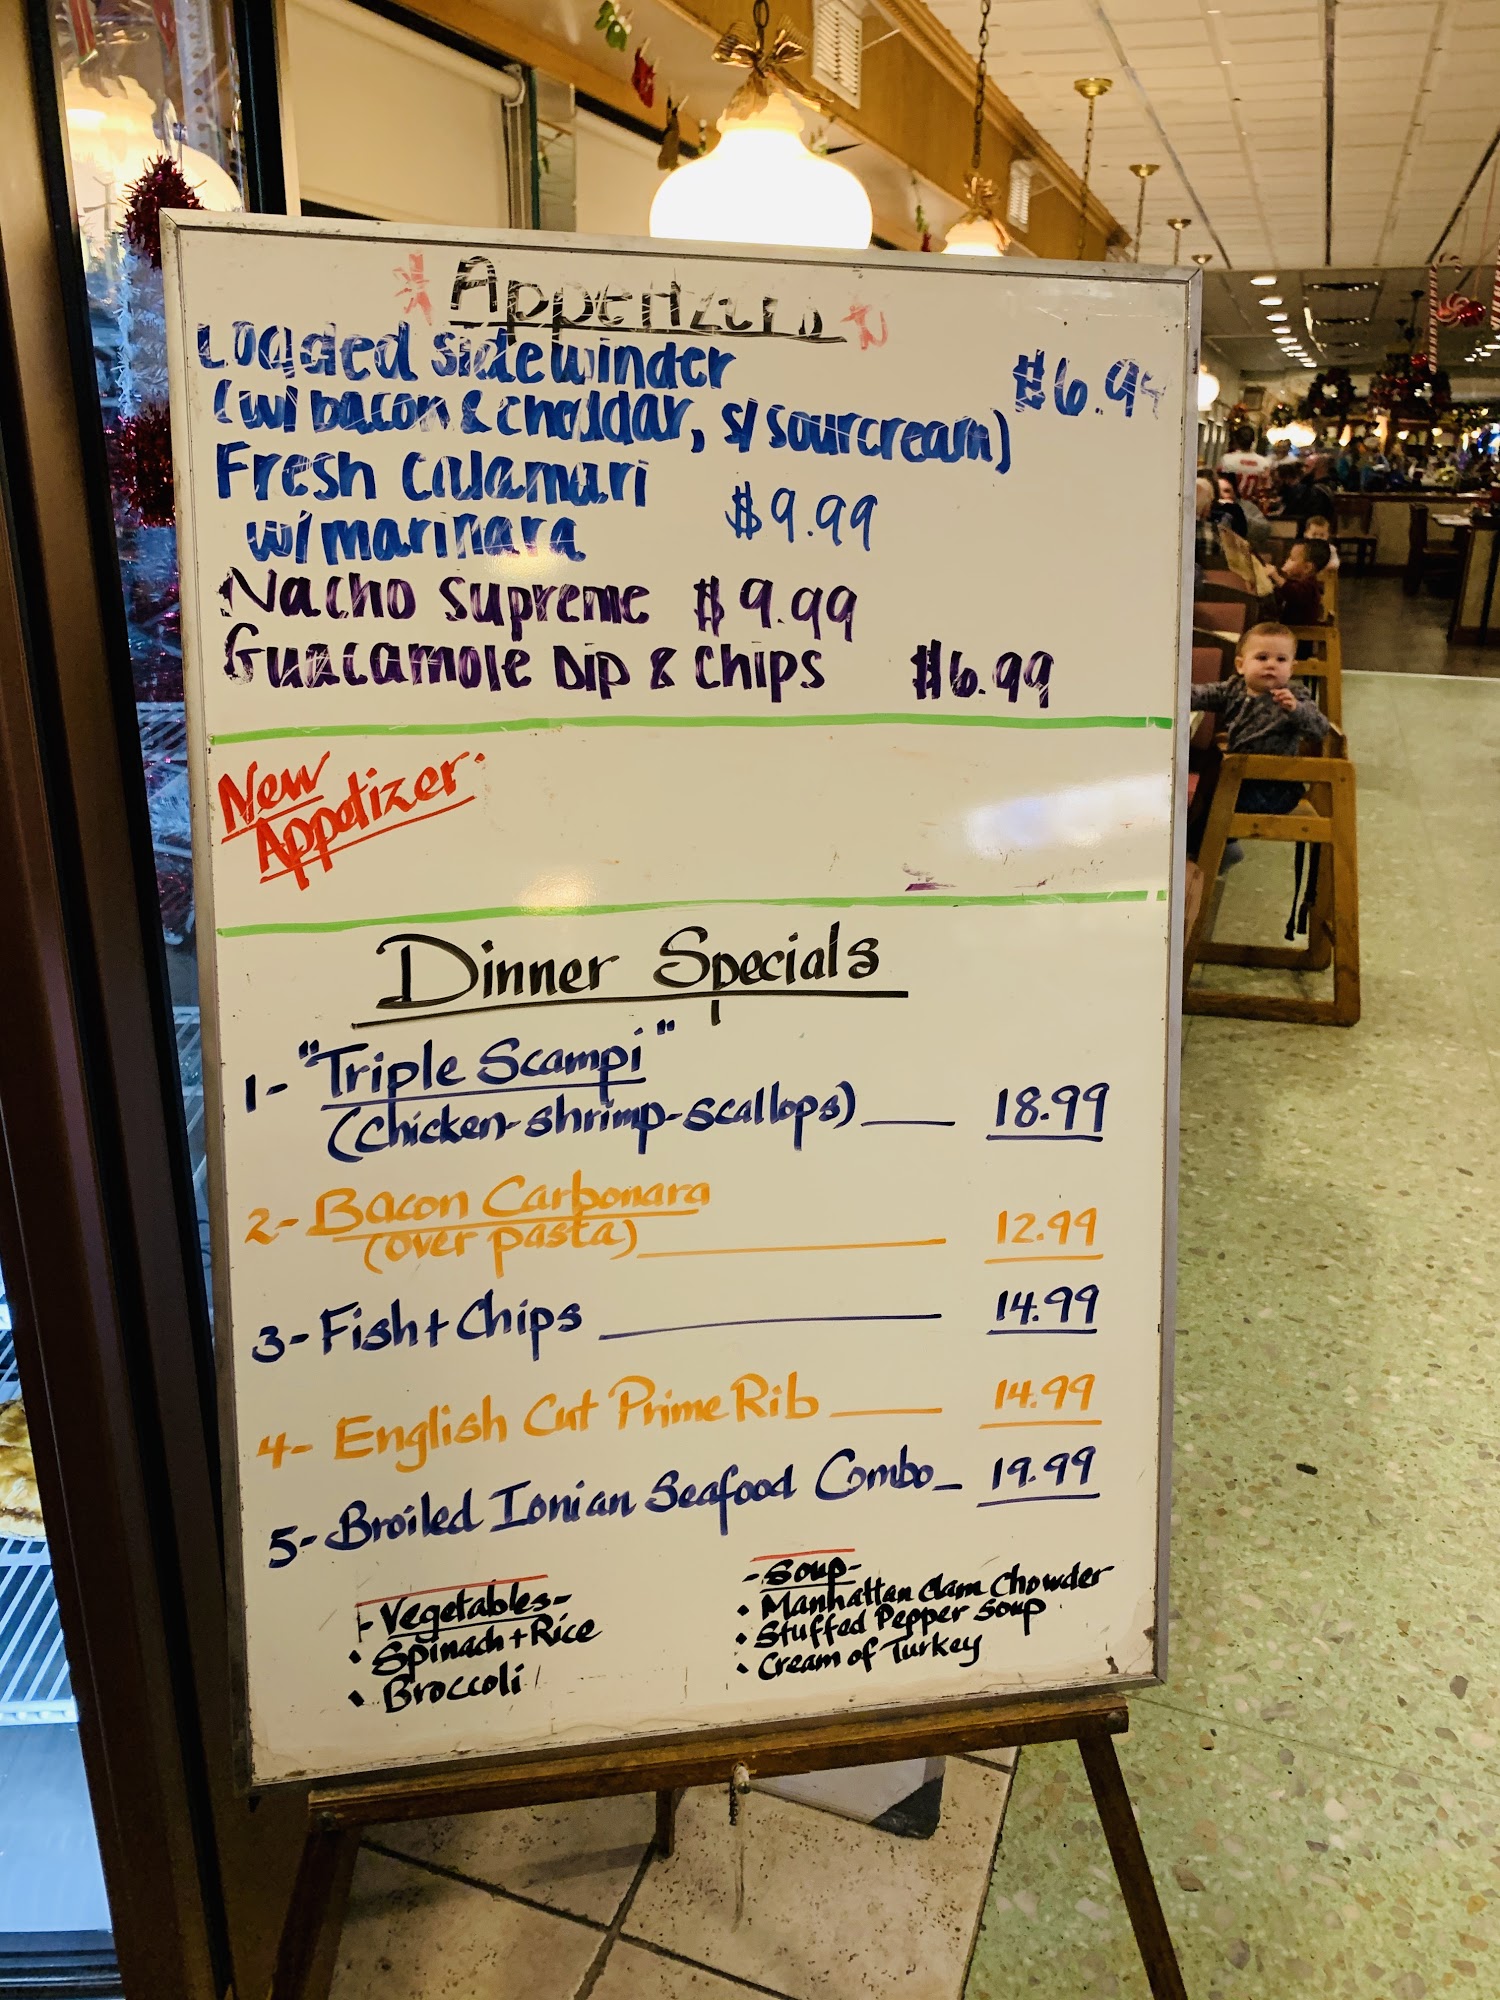 Appetizers
Loaded sidewinder $6.99
(w/ bacon & cheddar, s/ sourcream)
Fresh Calamari
w/ marinara $9.99
Nacho Supreme $9.99
Guacamole Dip & Chips $6.99
New
Appetizer
Dinner Specials
1- "Triple Scampi"
(Chicken-shrimp-scallops) 18.99
2- Bacon Carbonara
(over pasta) 12.99
3- Fish + Chips 14.99
4- English Cut Prime Rib 14.99
5- Broiled Ionian Seafood Combo 19.99
- Vegetables -
• Spinach + Rice
• Broccoli
- Soup -
• Manhattan Clam Chowder
• Stuffed Pepper Soup
• Cream of Turkey